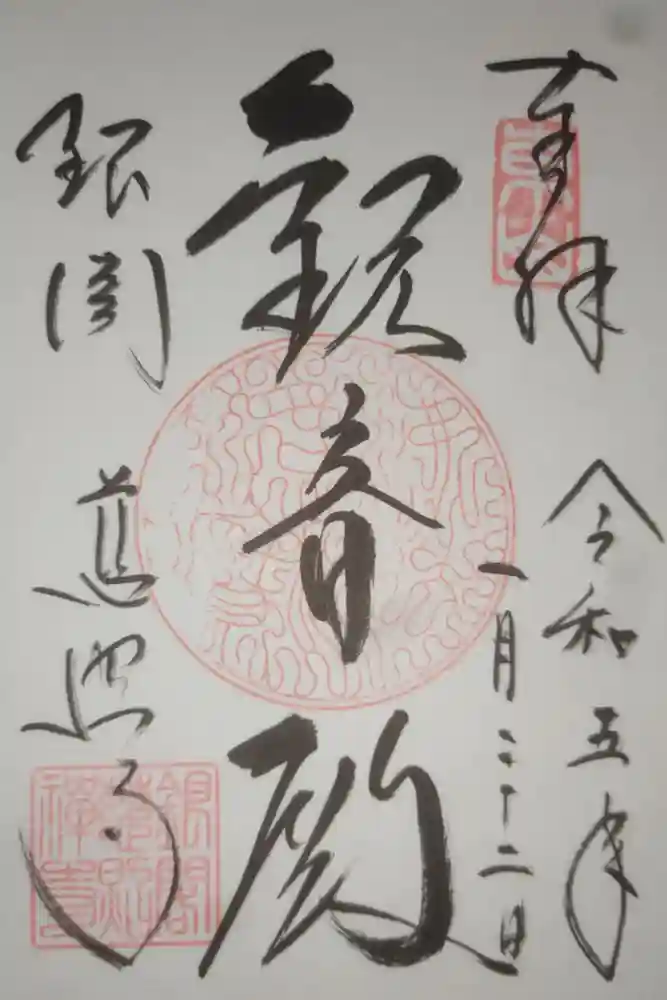 奉拝
令和五年
一月二十二日
観音殿
銀閣
慈照寺
銀閣
慈照
禅寺